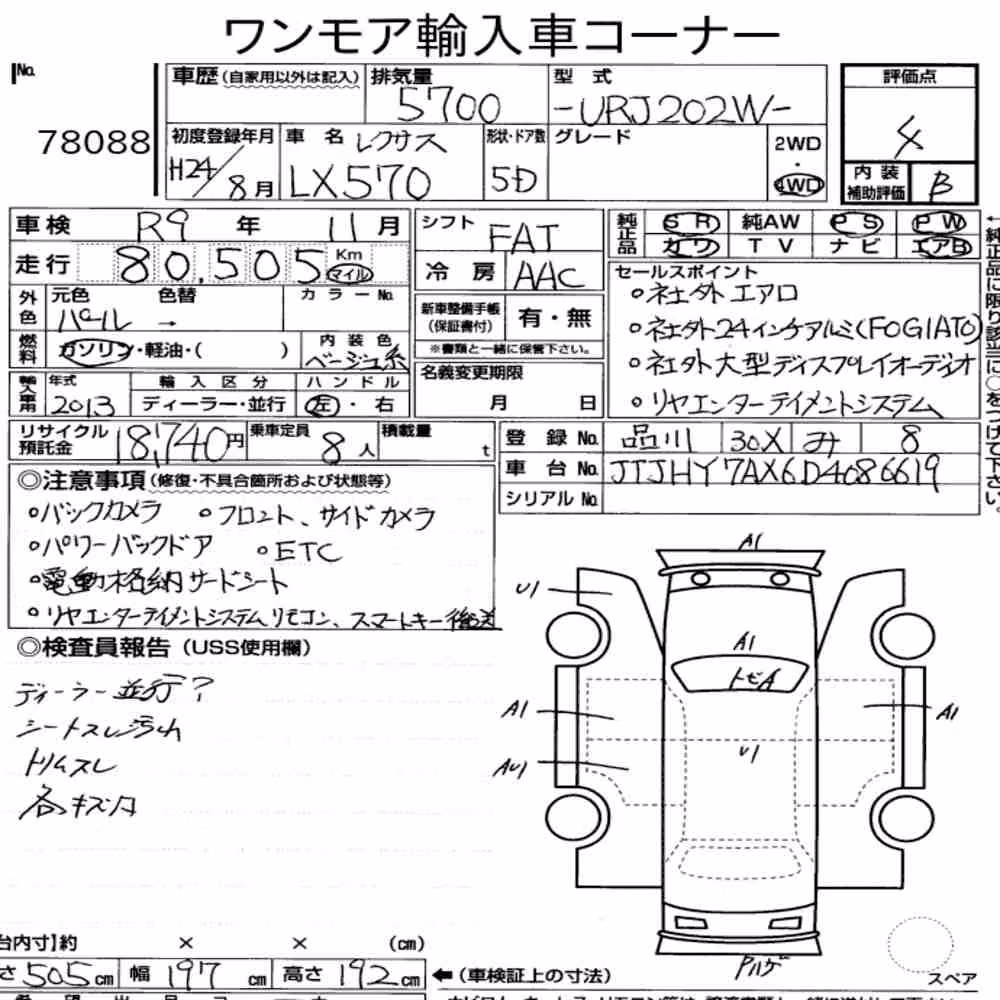 ワンモア輸入車コーナー
No. 78088
車歴 (自家用以外は記入) 排気量 5700 型式 -URJ202W- 評価点 4
初度登録年月 H24/8月 車名 レクサス LX570 形状・ドア数 5D グレード 2WD・4WD 内装補助評価 B
車検 R9年 11月 シフト FAT 純正品 SR 純AW PS PW
走行 80,505 Km マイル 冷房 AAC カワ TV ナビ エアB
外色 元色 パール 色替 → カラーNo. 新車整備手帳(保証書付) 有・無
※書類と一緒に保管下さい。
燃料 ガソリン・軽油・( ) 内装色 ベージュ系
セールスポイント
◦社外エアロ
◦社外24インチアルミ(FOGIATO)
◦社外大型ディスプレイオーディオ
◦リヤエンターテイメントシステム
輸入車用 年式 2013 輸入区分 ディーラー・並行 ハンドル 左・右 名義変更期限 月 日
リサイクル預託金 18,740円 乗車定員 8人 積載量 t
登録No. 品川 30X み 8
車台No. JTJHY7AX6D4086619
シリアルNo.
◎注意事項(修復・不具合箇所および状態等)
◦バックカメラ ◦フロント、サイドカメラ
◦パワーバックドア ◦ETC
◦電動格納サードシート
◦リヤエンターテイメントシステムリモコン、スマートキー後送
◎検査員報告(USS使用欄)
ディーラー並行?
シートスレ汚れ
トリムスレ
各キズ凹
A1
U1
A1
トビA
A1
A1
U1
AU1
Pハゲ
スペア
台内寸】約 × × (cm)
さ505cm 幅197cm 高さ192cm ←(車検証上の寸法)
←純正品に限り該当に○をつけて下さい。